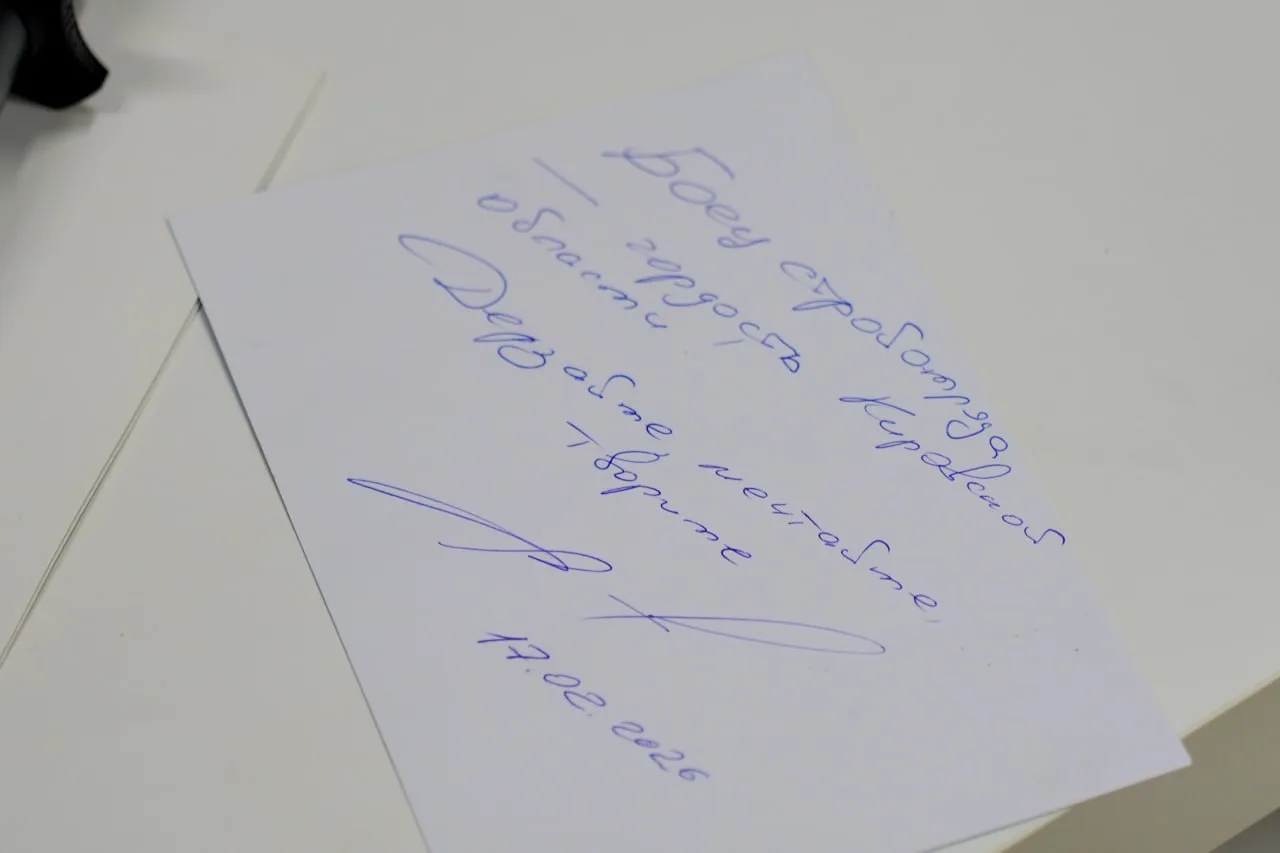 Боец стройотряда
— гордость Кировской
области
Дерзайте, мечтайте,
творите
17.02.2026